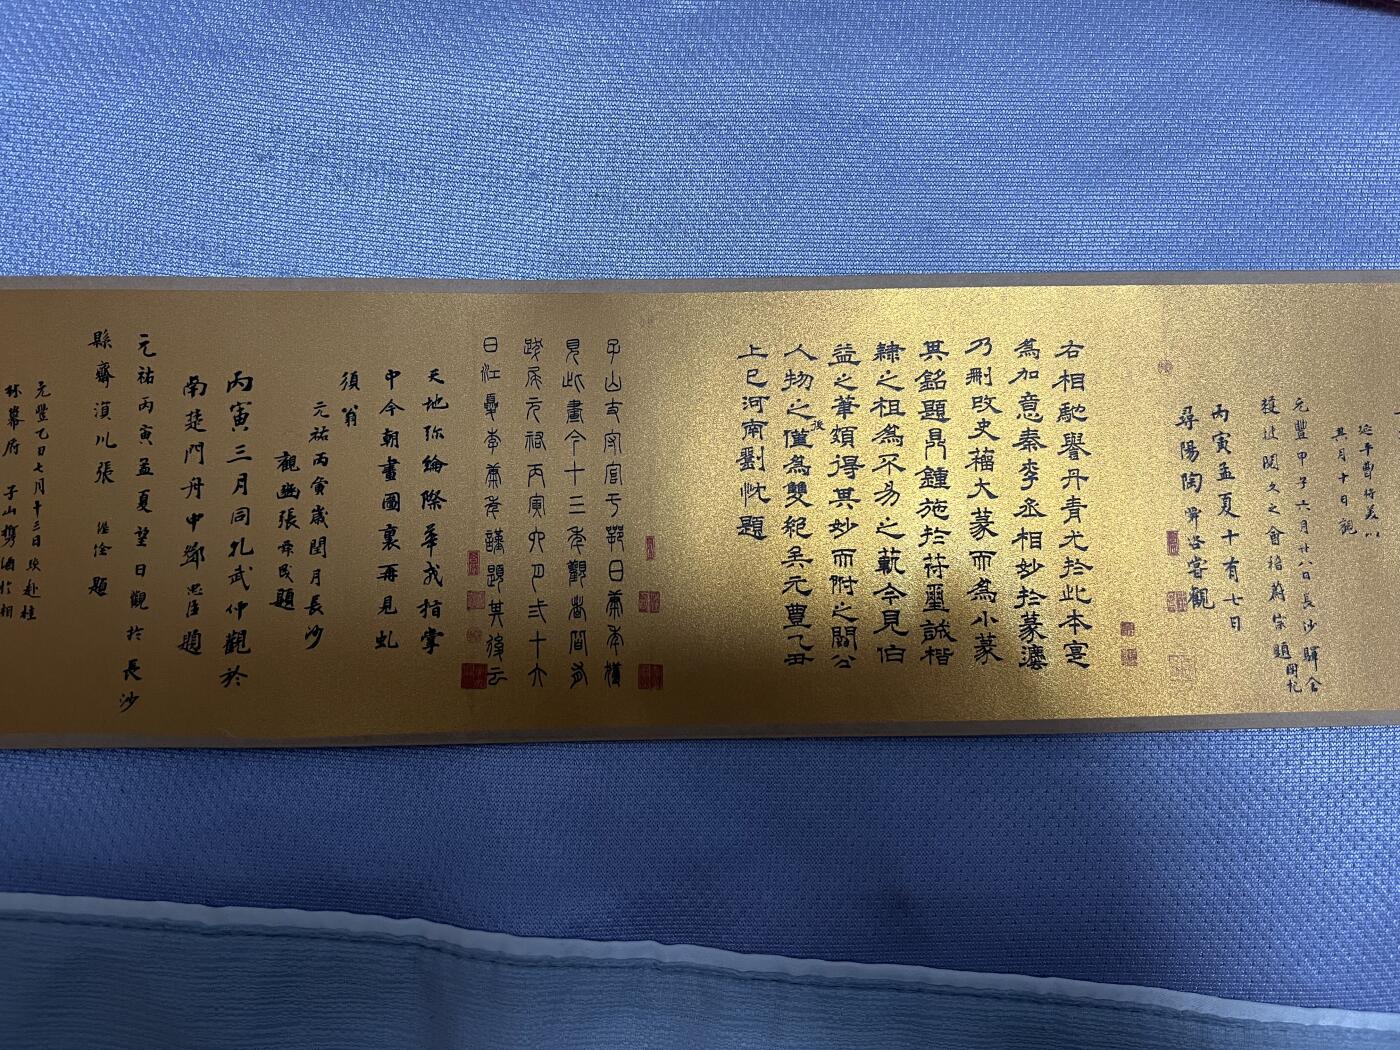 延平曹
其月十日觀
元豐甲子六月廿八日長沙驛舍
獲披閱久之會稽蔚宗題
丙寅孟夏十有七日
尋陽陶舜咨審觀
右相馳譽丹青尤於此本寔
為加意秦李丞相妙於篆瀍
乃刪改史籀大篆而為小篆
其銘題鼎鍾施於符璽誠楷
隸之祖為不易之範今見伯
益之筆頗得其妙而附之閻公
人物之後僅為雙絕矣元豐乙丑
上巳河南劉忱題
子山支使官于鄂日蕭
見此畫今十三年觀者
元祐丙寅六月二十六
日江 李 謹題其後云
天地弥綸際華戎指掌
中今朝畫圖裏再見虬
須翁
元祐丙寅歲閏月長沙
觀 張舜民題
丙寅三月同孔武仲觀於
南楚門舟中鄧忠臣題
元祐丙寅孟夏望日觀於長沙
縣齋 川張 題
元豐乙丑七月十三日 赴桂
林幕府 子山 酒於湘